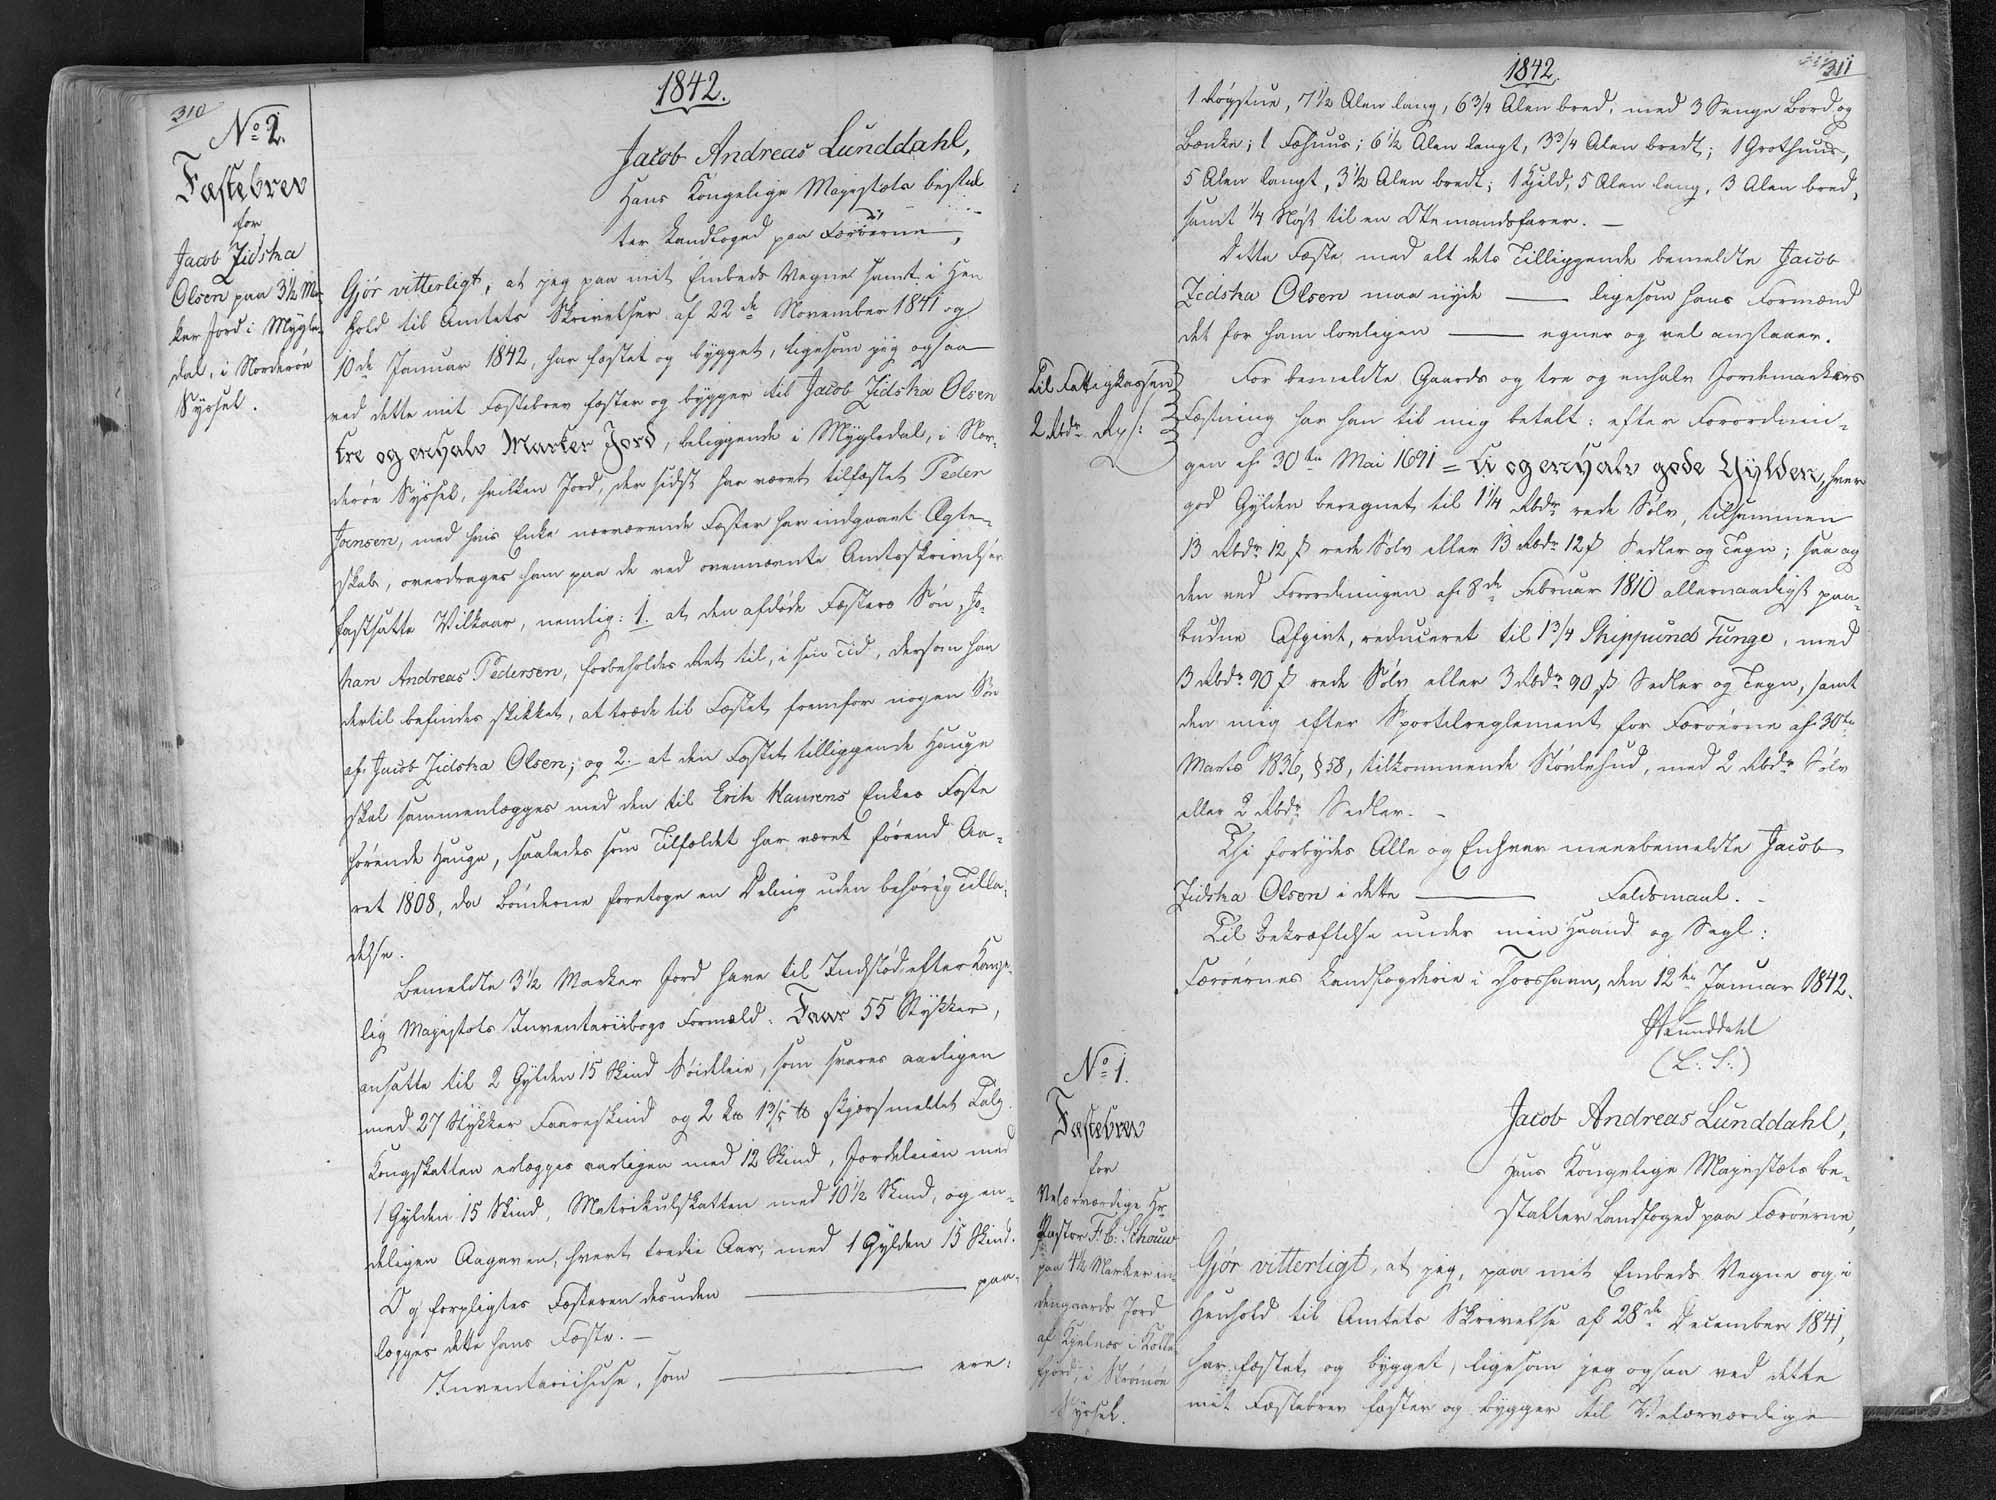 310
1842.
No 2.
Fæstebrev
for
Jacob Zidska
Olsen paa 3½ Mar-
ker Jord i Mygle-
dal, i Norderøe
Syssel.
Jacob Andreas Lunddahl,
Hans Kongelige Majestæts bestal-
ter Landfoged paa Færøerne,
Gjør vitterligt, at jeg paa mit Embeds Vegne samt i Hen-
hold til Amtets Skrivelser af 22de November 1841 og
10de Januar 1842, har fæstet og bygget, ligesom jeg ogsaa
ved dette mit Fæstebrev fæster og bygger til Jacob Zidska Olsen
tre og enhalv Marker Jord, beliggende i Mygledal, i Nor-
derøe Syssel, hvilken Jord, der sidst har været tilfæstet Peder
Joensen, med hvis Enke nærværende Fæster har indgaaet Ægte-
skab, overdrages ham paa de ved ovennævnte Amtsskrivelser
fastsatte Vilkaar, nemlig: 1. at den afdøde Fæsters Søn, Jo-
han Andreas Pedersen, forbeholdes Ret til, i sin Tid, dersom han
dertil befindes skikket, at træde til Fæstet fremfor nogen Søn
af Jacob Zidska Olsen; og 2. at den Fæstet tilliggende Hauge
skal sammenlægges med den til Erik Haurens Enkes Fæste
hørende Hauge, saaledes som Tilfældet har været førend Aa-
ret 1808, da Bønderne foretoge en Deling uden behørig Tilla-
delse.
Bemeldte 3½ Marker Jord have til Indstød efter Konge-
lig Majestæts Inventariibogs Formæld: Faar 55 Stykker,
ansatte til 2 Gylden 15 Skind Søideleie, som svares aarligen
med 27 Stykker Faareskind og 2 Lod 1 3/5 ℔ skjærsmeltet Talg.
Kongskatten erlægges aarligen med 12 Skind, Jordeleien med
1 Gylden 15 Skind, Matrikulskatten med 10½ Skind, og en-
deligen Aagaven, hvert tredie Aar, med 1 Gylden 15 Skind.
Og forpligtes Fæsteren desuden — paa-
lægges dette hans Fæste. —
Inventariihuse, som — ere:
311
1842.
1 Røgstue, 7½ Alen lang, 6¾ Alen bred, med 3 Senge Bord og
Bænke; 1 Fæhuus; 6½ Alen langt, 3¾ Alen bredt; 1 Grothuus,
5 Alen langt, 3½ Alen bredt; 1 Hjeld, 5 Alen lang, 3 Alen bred,
samt ¼ Nøst til en Ottemandsfarer. —
Dette Fæste med alt dets Tilliggende bemeldte Jacob
Zidska Olsen maa nyde — ligesom hans Formænd
det for ham lovligen — egner og vel anstaaer.
Til Fattigkassen
2 Rbdr. Rp/:
For bemeldte Gaards og tre og enhalv Jordemarkers
Fæstning har han til mig betalt: efter Forordnin-
gen af 30te Mai 1691 = ti og enhalv gode Gylden, hver
god Gylden beregnet til 1¼ Rbdr rede Sølv, tilsammen
13 Rbdr 12 ß rede Sølv eller 13 Rbdr 12 ß Sedler og Tegn; saa og
den ved Forordningen af 8de Februar 1810 allernaadigst paa-
budne Afgivt, reduceret til 1¾ Skippund Tunge, med
3 Rbdr 90 ß rede Sølv eller 3 Rbdr 90 ß Sedler og Tegn, samt
den mig efter Sportelreglement for Færøerne af 30te
Marts 1836, § 58, tilkommende Støvlehud, med 2 Rbdr Sølv
eller 2 Rbdr Sedler. —
Thi forbydes Alle og Enhver meerbemeldte Jacob
Zidska Olsen i dette — Faldsmaal. —
Til Bekræftelse under min Haand og Segl:
Færøernes Landfogderie i Thorshavn, den 12te Januar 1842.
Lunddahl
(L. S.)
No 1.
Fæstebrev
for
Velærværdige Hr.
Pastor F. C. Schouw
paa 4½ Marker in-
dengaards Jord
af Kjelnæs i Kolle-
fjord, i Strømøe
Syssel.
Jacob Andreas Lunddahl,
Hans Kongelige Majestæts be-
stalter Landfoged paa Færøerne,
Gjør vitterligt, at jeg, paa mit Embeds Vegne og i
Henhold til Amtets Skrivelse af 28de December 1841,
har fæstet og bygget, ligesom jeg ogsaa ved dette
mit Fæstebrev fæster og bygger til Velærværdige